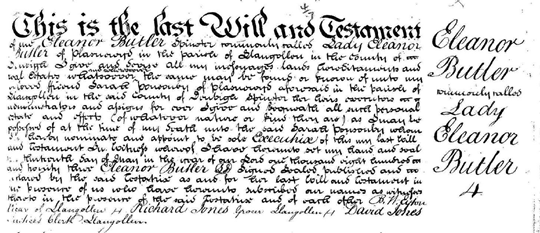 This is the last Will and Testament
of me Eleanor Butler Spinster commonly called Lady Eleanor
Butler of Plasnewydd in the parish of Llangollen in the County of
Denbigh I give and devise all my messuages lands hereditaments and
real estates whatsoever the same may be found or known of unto my
friend Sarah Ponsonby of Plasnewydd aforesaid in the parish of
Llangollen in the said County of Denbigh Spinster her heirs executors
administrators and assigns for ever I give and bequeath all such personal
estate and effects (of whatever nature or kind they are) as I may be
possessed of at the time of my death unto the said Sarah Ponsonby whom
I hereby nominate and appoint to be sole Executrix of this my last will
and testament In Witness whereof I have hereunto set my hand and seal
day of in the year of our Lord one thousand eight hundred
and twenty three Eleanor Butler Signed Sealed published and
by the said testatrix as and for her last will and testament in
the presence of us who have hereunto subscribed our names as witnesses
thereto in the presence of the said testatrix and of each other
Vicar of Llangollen Richard Jones Llangollen David Jones
Clerk Llangollen
Eleanor
Butler
commonly called
Lady
Eleanor
Butler
4